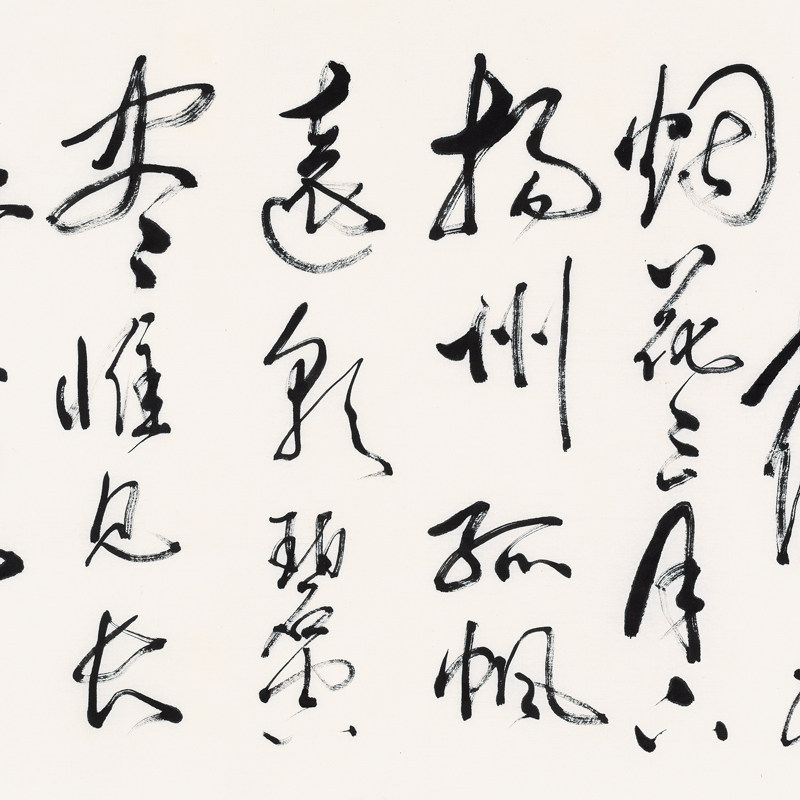 烟花三月下
揚州孤帆
遠影碧空
尽惟见长